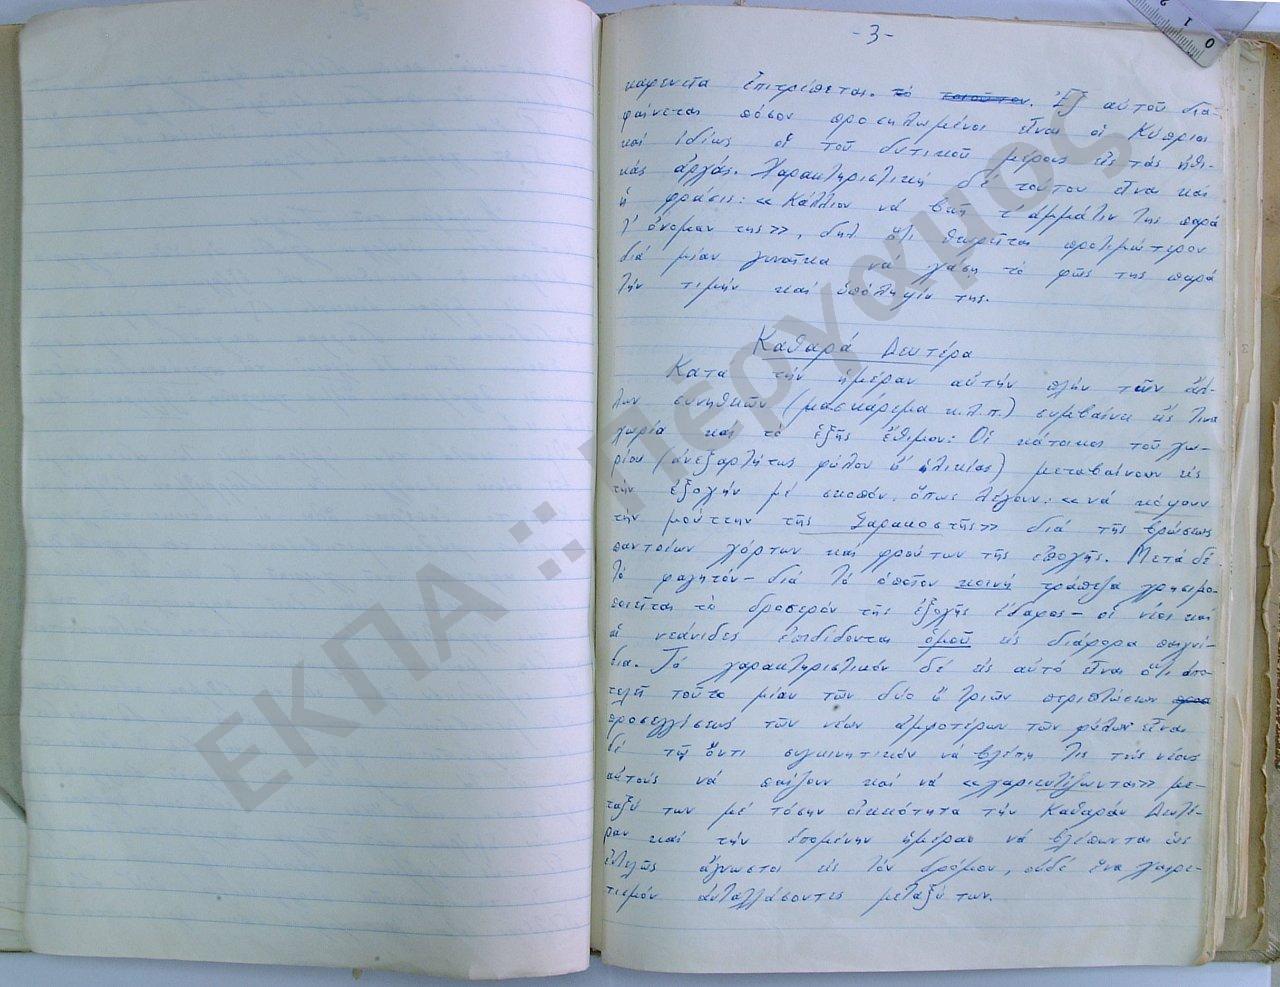 -3-
καφενεῖα ἐπιτρέπεται. τό τοιοῦτον. Ἐξ αὐτοῦ δια-
φαίνεται πόσον προσηλωμένοι εἶναι οἱ Κύπριοι
καί ἰδίως οἱ τοῦ δυτικοῦ μέρους εἰς τάς ἠθι-
κάς ἀρχάς. Χαρακτηριστική δέ τούτου εἶναι καί
ἡ φράσις: «Κάλλιον νά βγῇ τ' ἀμμάτιν της παρά
τ' ὄνομαν της», δηλ. ὅτι θεωρεῖται προτιμώτερον
διά μίαν γυναῖκα νά χάσῃ τό φῶς της παρά
τήν τιμήν καί ὑπόληψίν της.
Καθαρά Δευτέρα
Κατά τήν ἡμέραν αὐτήν πλήν τῶν ἄλ-
λων συνηθειῶν (μασκάρεμα κ.λ.π.) συμβαίνει εἰς τινα
χωρία καί τό ἑξῆς ἔθιμον: Οἱ κάτοικοι τοῦ χω-
ρίου (ἀνεξαρτήτως φύλου ἤ ἡλικίας) μεταβαίνουν εἰς
τήν ἐξοχήν μέ σκοπόν, ὅπως λέγουν: «νά κόψουν
τήν μούττην τῆς Σαρακοστῆς» διά τῆς βρώσεως
παντοίων χόρτων καί φρούτων τῆς ἐποχῆς. Μετά δέ
τό φαγητόν - διά τό ὁποῖον κοινή τράπεζα χρησιμο-
ποιεῖται τό δροσερόν τῆς ἐξοχῆς ἔδαφος - οἱ νέοι καί
αἱ νεάνιδες ἐπιδίδονται ὁμοῦ εἰς διάφορα παιγνί-
δια. Τό χαρακτηριστικόν δέ εἰς αὐτό εἶναι ὅτι ἀπο-
τελεῖ τοῦτο μίαν τῶν δύο ἤ τριῶν περιπτώσεων προσ
προσεγγίσεως τῶν νέων ἀμφοτέρων τῶν φύλων εἶναι
δέ τῷ ὄντι συγκινητικόν νά βλέπῃ τις τούς νέους
αὐτούς νά παίζουν καί νά «χαριεντίζωνται» με-
ταξύ των μέ τόσην οἰκειότητα τήν Καθαράν Δευτέ-
ραν καί τήν ἑπομένην ἡμέραν νά βλέπωνται ὡς
ἐντελῶς ἄγνωστοι εἰς τόν δρόμον, οὐδέ ἕνα χαιρε-
τισμόν ἀνταλλάσοντες μεταξύ των.
ΕΚΠΑ :: Πέργαμος
0 1 2